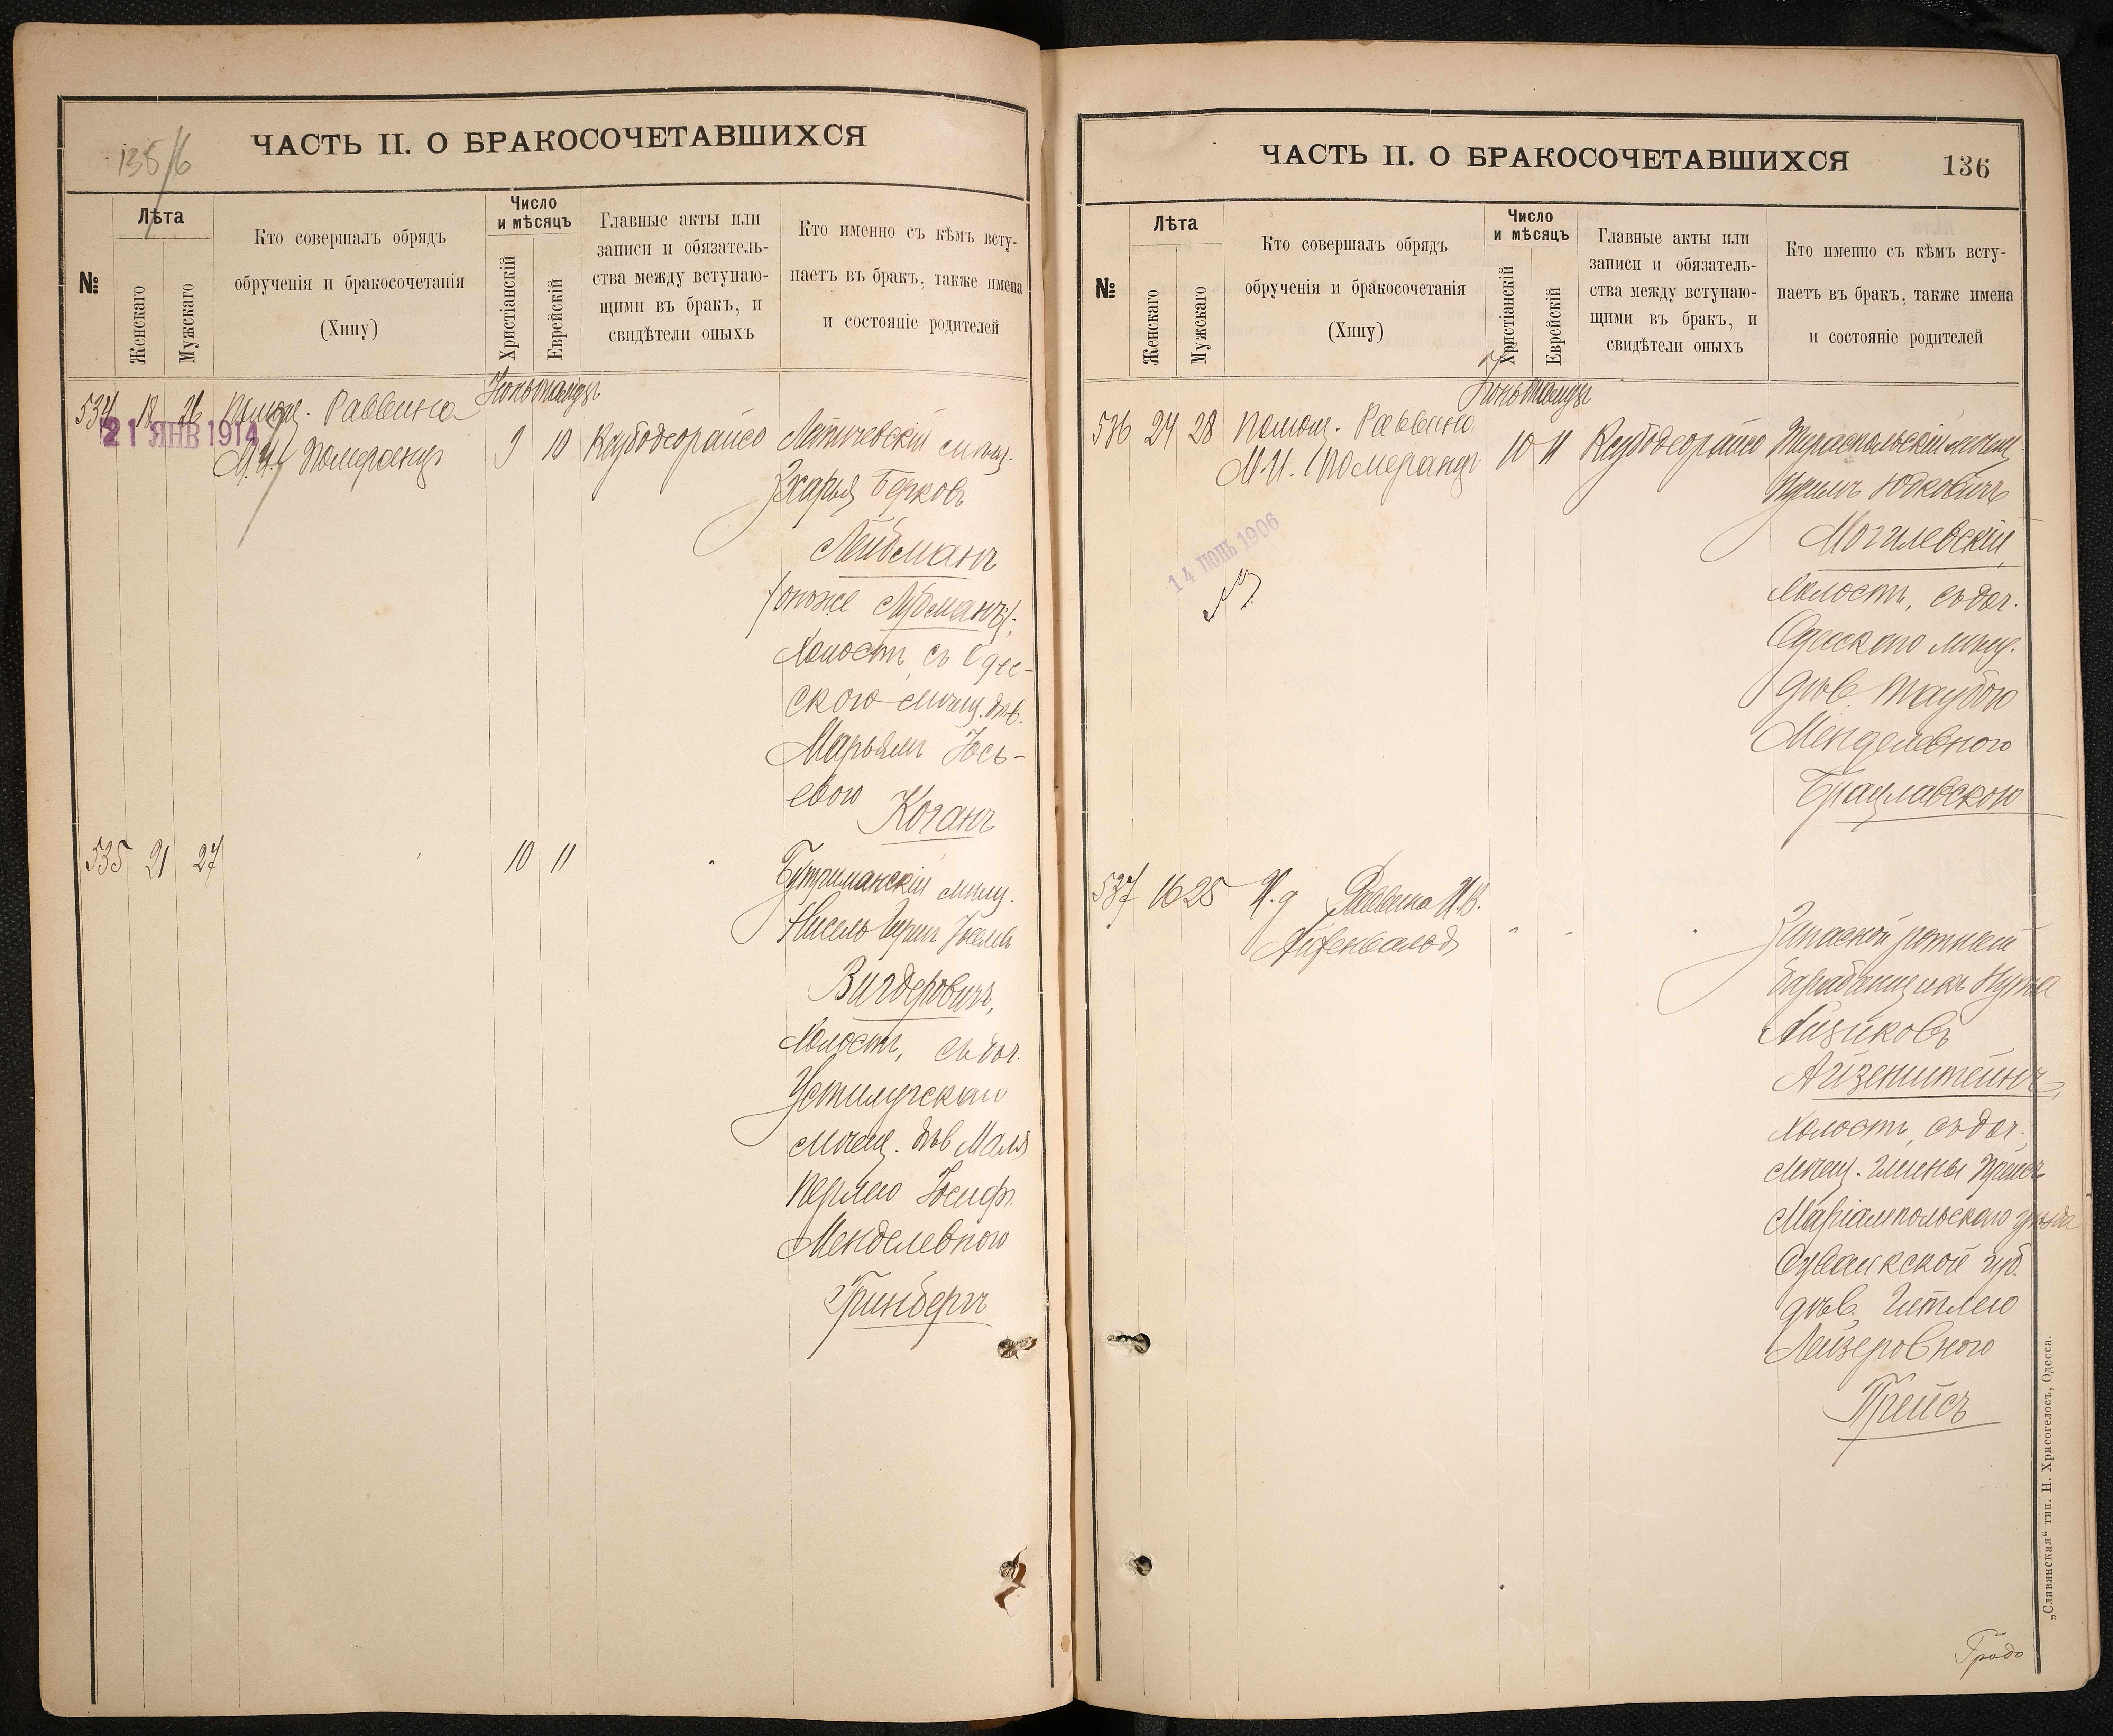 135/6
ЧАСТЬ II. О БРАКОСОЧЕТАВШИХСЯ
№
Лѣта
Женскаго
Мужскаго
Кто совершалъ обрядъ
обрученія и бракосочетанія
(Хипу)
Число
и мѣсяцъ
Христіанскій
Еврейскій
Главные акты или
записи и обязатель-
ства между вступаю-
щими въ бракъ, и
свидѣтели оныхъ
Кто именно съ кѣмъ всту-
паетъ въ бракъ, также имена
и состояніе родителей
Іюнь Тамузъ
534 18 26 Помощ. Раввина
21 ЯНВ 1914
М.И. Померанцъ
9 10 Ксубодеорайсо
Летичевскій мѣщ.
Зхарья Берковъ
Лейбманъ
/онъже Лубманъ/,
холостъ, съ Одес-
скою мѣщ. дѣв.
Марьямъ Іось-
евою
Коганъ
535 21 27 10 11 "
Бутриманскій мѣщ.
Нисель Іосель
Вигдеровичъ,
холостъ, съ доч.
Устилугскаго
мѣщ. дѣв Маля
Перлею Іосиф.
Менделевною
Гринбергъ
ЧАСТЬ II. О БРАКОСОЧЕТАВШИХСЯ
136
№
Лѣта
Женскаго
Мужскаго
Кто совершалъ обрядъ
обрученія и бракосочетанія
(Хипу)
Число
и мѣсяцъ
Христіанскій
Еврейскій
Главные акты или
записи и обязатель-
ства между вступаю-
щими въ бракъ, и
свидѣтели оныхъ
Кто именно съ кѣмъ всту-
паетъ въ бракъ, также имена
и состояніе родителей
Іюнь Тамузъ
536 24 28 Помощ. Раввина
М.И. Померанцъ
10 11 Ксубодеорайсо
Тираспольскій мѣщ.
Юдковичъ
Могилевскій,
холостъ, съ доч.
Одесскаго мѣщ.
дѣв. Таубою
Менделевною
Брацлавскою
14 ІЮНЬ 1906
537 16 25 И.д Раввина И.В.
Айзенвалодъ
" " "
Запасной ротный
барабанщикъ Нута
Айзиковъ
Айзенштейнъ,
холостъ, съ доч.
мѣщ. гмины
Маріампольскаго уѣзда
Сувалкской губ.
дѣв. Гитлею
Лейзеровною
Прейсъ
„Славянская“ тип. Н. Хрисогелосъ, Одесса.